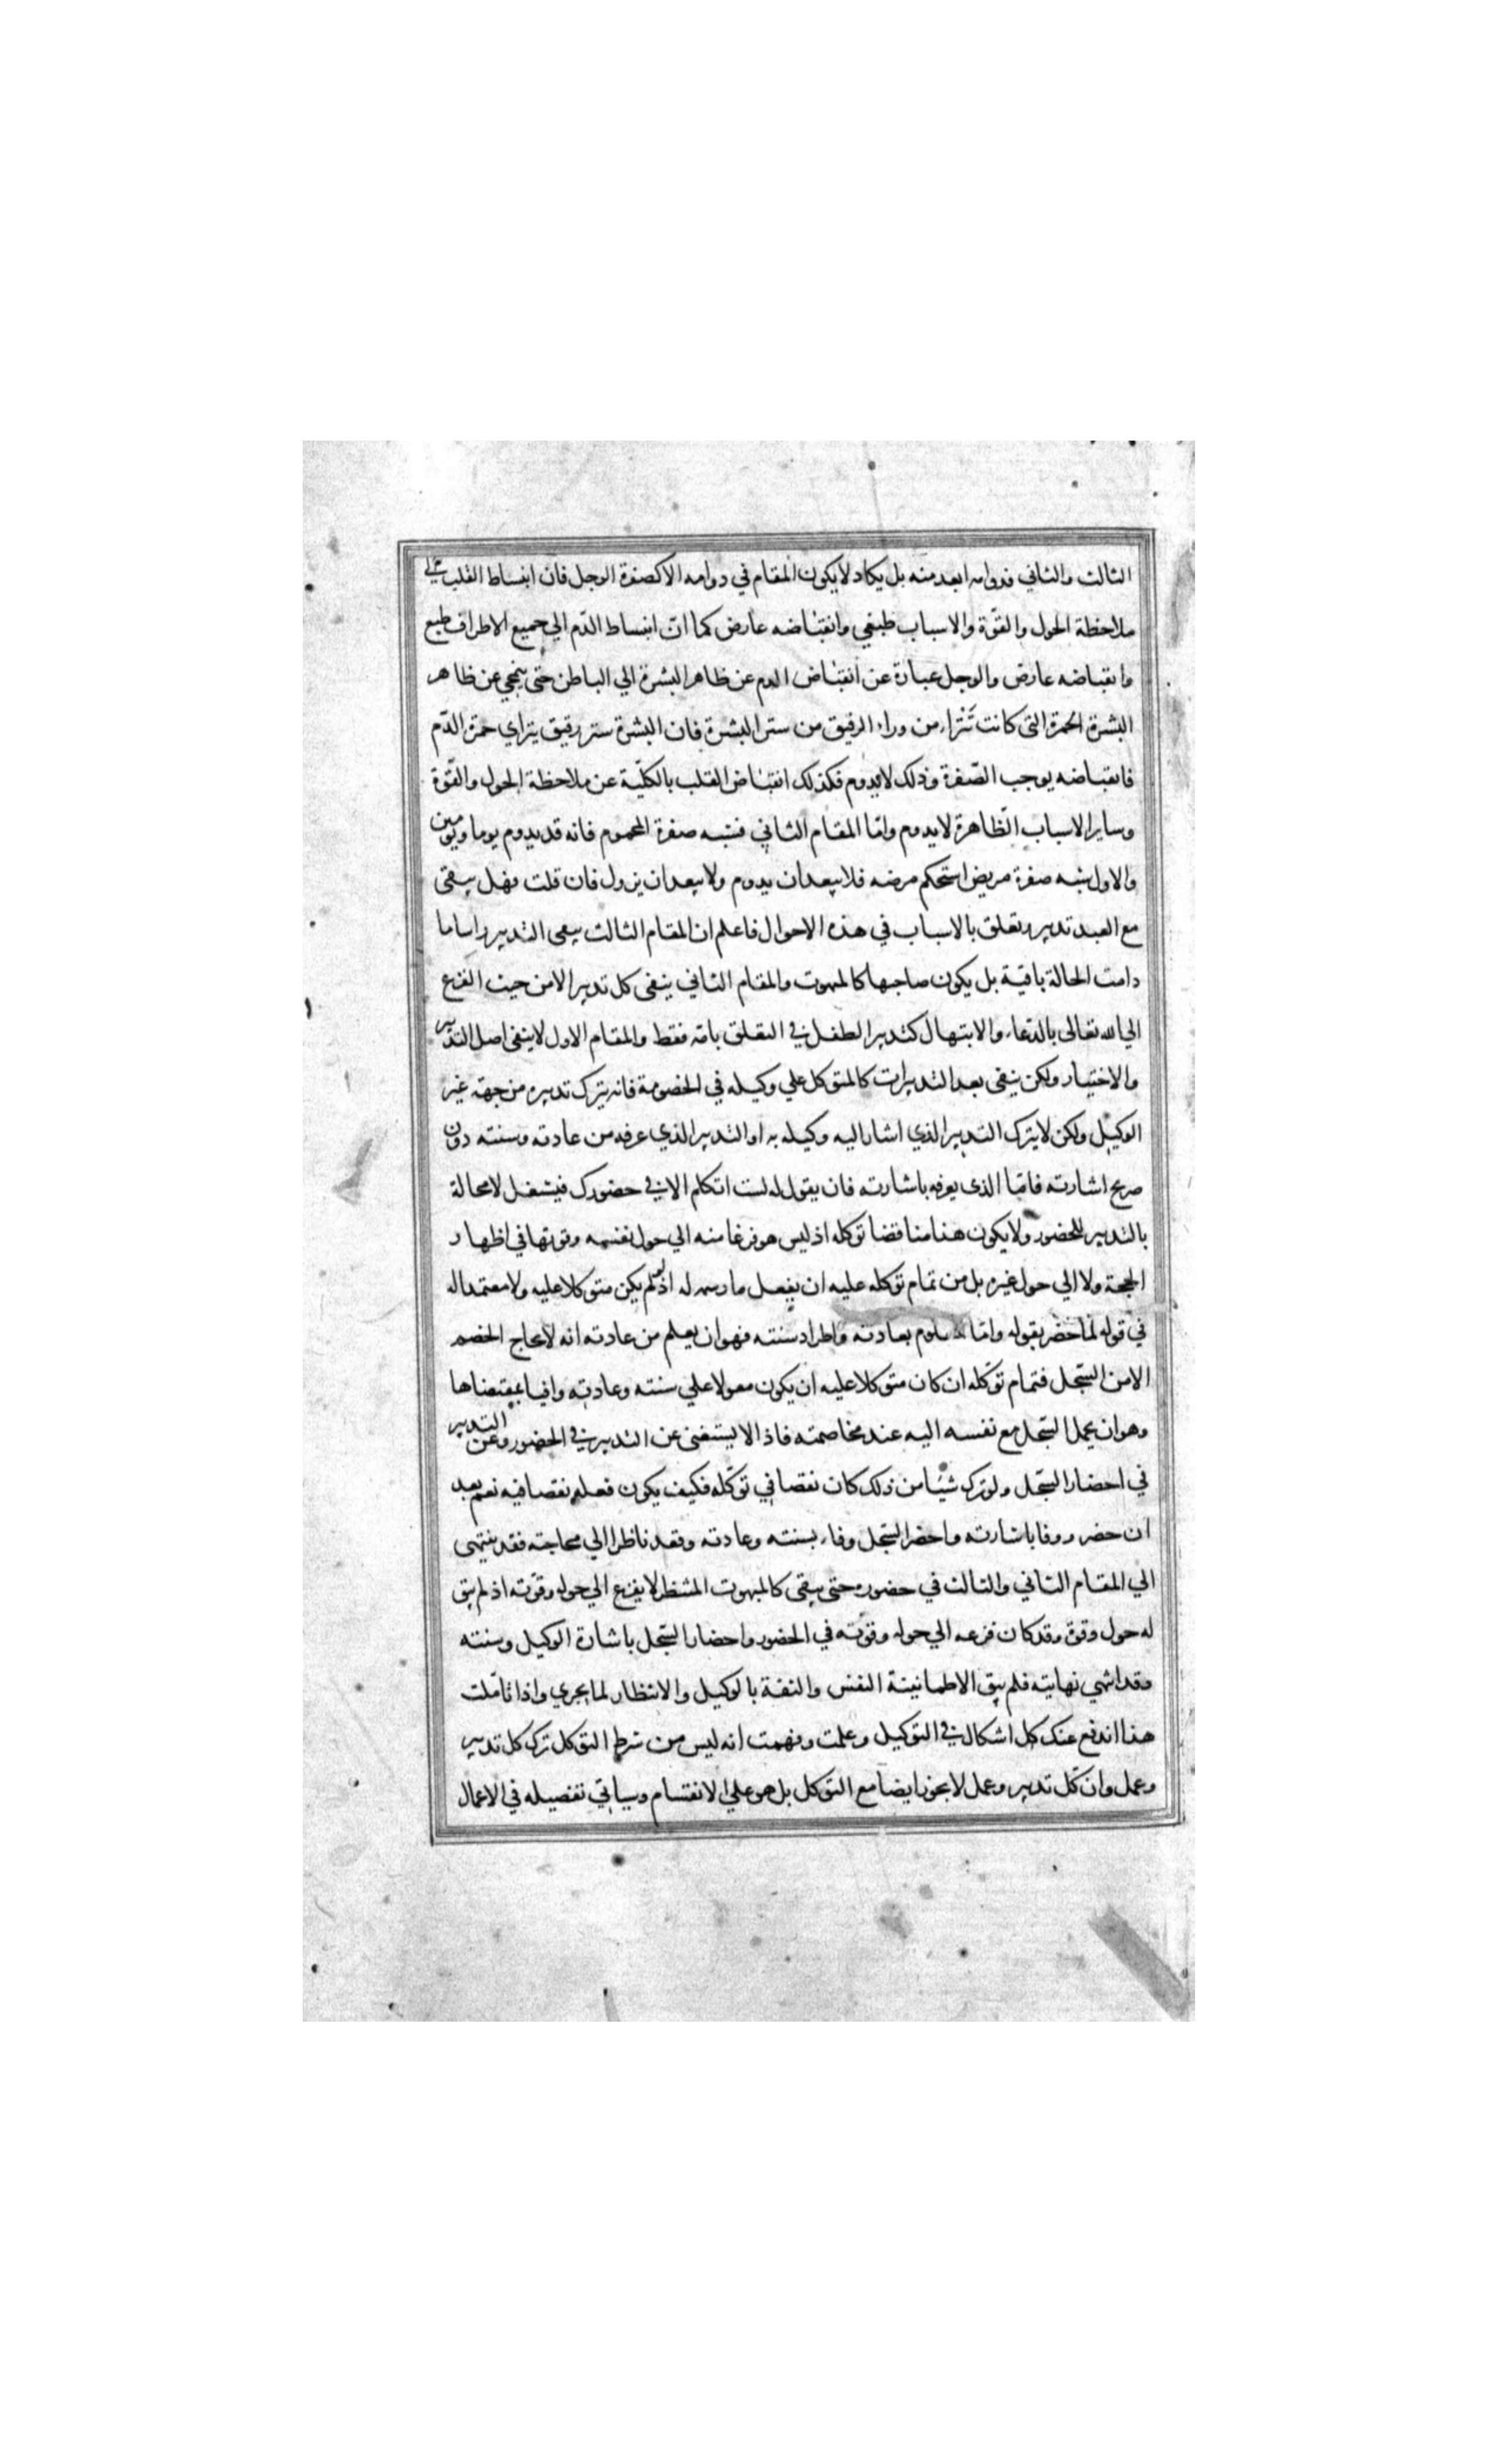 الثالث والثاني فدوامه ابعد منه بل يكاد لا يكون المقام في دوامه الا كصفرة الوجل فان انبساط القلب الي
ملاحظة الحول والقوّة والاسباب طبيعي وانقباضه عارض كما انّ انبساط الدّم الي جميع الاطراف طبع
وانقباضه عارض والوجل عبارة عن انقباض الدم عن ظاهر البشرة الي الباطن حتى ينمحي عن ظاهر
البشرة الحمرة التى كانت تَتراء من وراء الرقيق من ستر البشرة فان البشرة ستر رقيق يتراي حمرة الدّم
فانقباضه يوجب الصّفرة وذلك لايدوم فكذلك انقباض القلب بالكلّية عن ملاحظة الحول والقّوة
وساير الاسباب الظّاهرة لايدوم وامّا المقام الثاني فيشبه صفرة المحموم فانه قد يدوم يوما ويومين
والاول يشبه صفرة مريض استحكم مرضه فلا يبعد ان يدوم ولا يبعد ان يزول فان قلت فهل يبقى
مع العبد تدبير وتعلق بالاسباب في هذه الاحوال فاعلم ان المقام الثالث ينفى التدبير راسا ما
دامت الحالة باقية بل يكون صاحبها كالمبهوت والمقام الثاني ينفى كل تدبير الا من حيث الفزع
الي الله تعالى بالدّعاء والابتهال كتدبير الطفل في التعلق بامّه فقط والمقام الاول لاينفى اصل التدبير
والاختيار ولكن ينفى بعد التدبيرات كالمتوكل علي وكيله في الخصومة فانه يترك تدبيره من جهة غير
الوكيل ولكن لا يترك التدبير الذي اشار اليه وكيله به او التدبير الذي عرفه من عادته وسنته دون
صريح اشارته فامّا الذى يعرفه باشارته فان يقول له لست اتكلم الا في حضورك فيشغل لامحالة
بالتدبير للحضور ولا يكون هذا مناقضا توكله اذ ليس هو فزعا منه الي حول نفسه وقوتها في اظهار
الحجة ولا الي حول غيره بل من تمام توكله عليه ان يفعل ما رسمه له اذ لو لم يكن متوكلا عليه ولا معتمدا له
في قوله لما حضر بقوله وامّا المعلوم بعادته واطراد سنته فهو ان يعلم من عادته انه لايحاج الخصم
الا من السّجل فتمام توكّله ان كان متوكلا عليه ان يكون معولا علي سنته وعادته وافيا بمقتضاها
وهو ان يحمل السّجل مع نفسه اليه عند مخاصمته فاذا لا يستغنى عن التدبير في الحضور وعن التدبير
في احضار السّجل ولو ترك شيئا من ذلك كان نقصا في توكّله فكيف يكون فعله نقصا فيه نعم بعد
ان حضر ووفا باشارته واحضر السّجل وفاء بسنته وعادته وقعد ناظرا الي محاجته فقد ينتهى
الي المقام الثاني والثالث في حضوره حتى يبقى كالمبهوت المنتظر لا يفزع الي حوله وقوّته اذ لم يبق
له حول وقوة وقد كان فزعه الي حوله وقوّته في الحضور واحضار السّجل باشارة الوكيل وسنته
وقد انتهي نهايته فلم يبق الا طمانينة النفس والثقة بالوكيل والانتظار لما يجري واذا تأمّلت
هذا اندفع عنك كل اشكال في التوكيل وعلمت وفهمت انه ليس من شرط التوكل ترك كل تدبير
وعمل وان كّل تدبير وعمل لا يجوز ايضا مع التوكل بل هو علي الانقسام وسياتي تفصيله في الاعمال